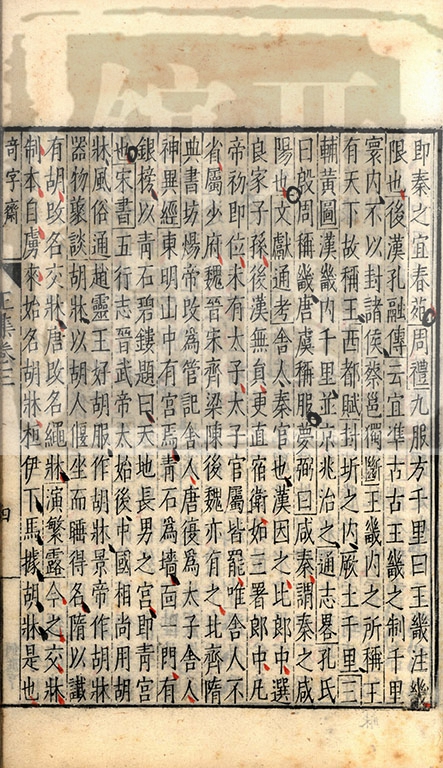 即秦之宜春苑周禮九服方千里曰王畿注畿
限也後漢孔融傳云宜準古王畿之制千里
寰内不以封諸侯蔡邕獨斷王畿内之所稱王
有天下故稱王西都賦封圻之内厥土千里三
輔黃圖漢畿内千里並京兆治之通志畧孔氏
曰殷周稱畿唐虞稱服夢弼曰咸秦謂秦之咸
陽也文獻通考舍人秦官也漢因之比郎中選
良家子孫後漢無員更直宿衛如三署郎中凡
帝初即位未有太子太子官屬皆罷唯舍人不
省屬少府魏晉宋齊梁陳後魏亦有之北齊隋
典書坊煬帝改為管記舍人唐復為太子舍人
神異經東明山中有宫焉青石為墻靣一門有
銀榜以青石碧鏤題曰天地長男之宫即青宫
也宋書五行志晉武帝太始後中國相尚用胡
牀風俗通趙靈王好胡服作胡牀景帝作胡牀
器物叢談胡牀以胡人偃坐而睡得名隋以讖
有胡改名交牀唐改名繩牀演繁露今之交牀
制本自虜來始名胡牀桓伊下馬據胡牀是也
奇字齋
卷三
四